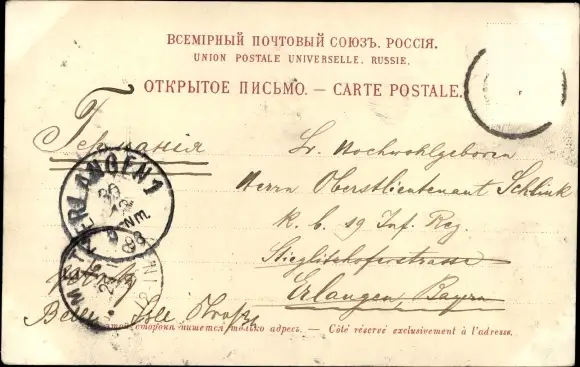 ВСЕМІРНЫЙ ПОЧТОВЫЙ СОЮЗЪ. РОССІЯ.
UNION POSTALE UNIVERSELLE. RUSSIE.
ОТКРЫТОЕ ПИСЬМО. — CARTE POSTALE.
Германія
Sr. Hochwohlgeboren
Herrn Oberstlieutenant Schlink
K. b. 19 Inf. Reg.
Stieglitzhoferstrasse
Erlangen, Bayern
ERLANGEN 1
Nm.
Belle
сторона пишется только адресъ. — Côté réservé exclusivement à l'adresse.